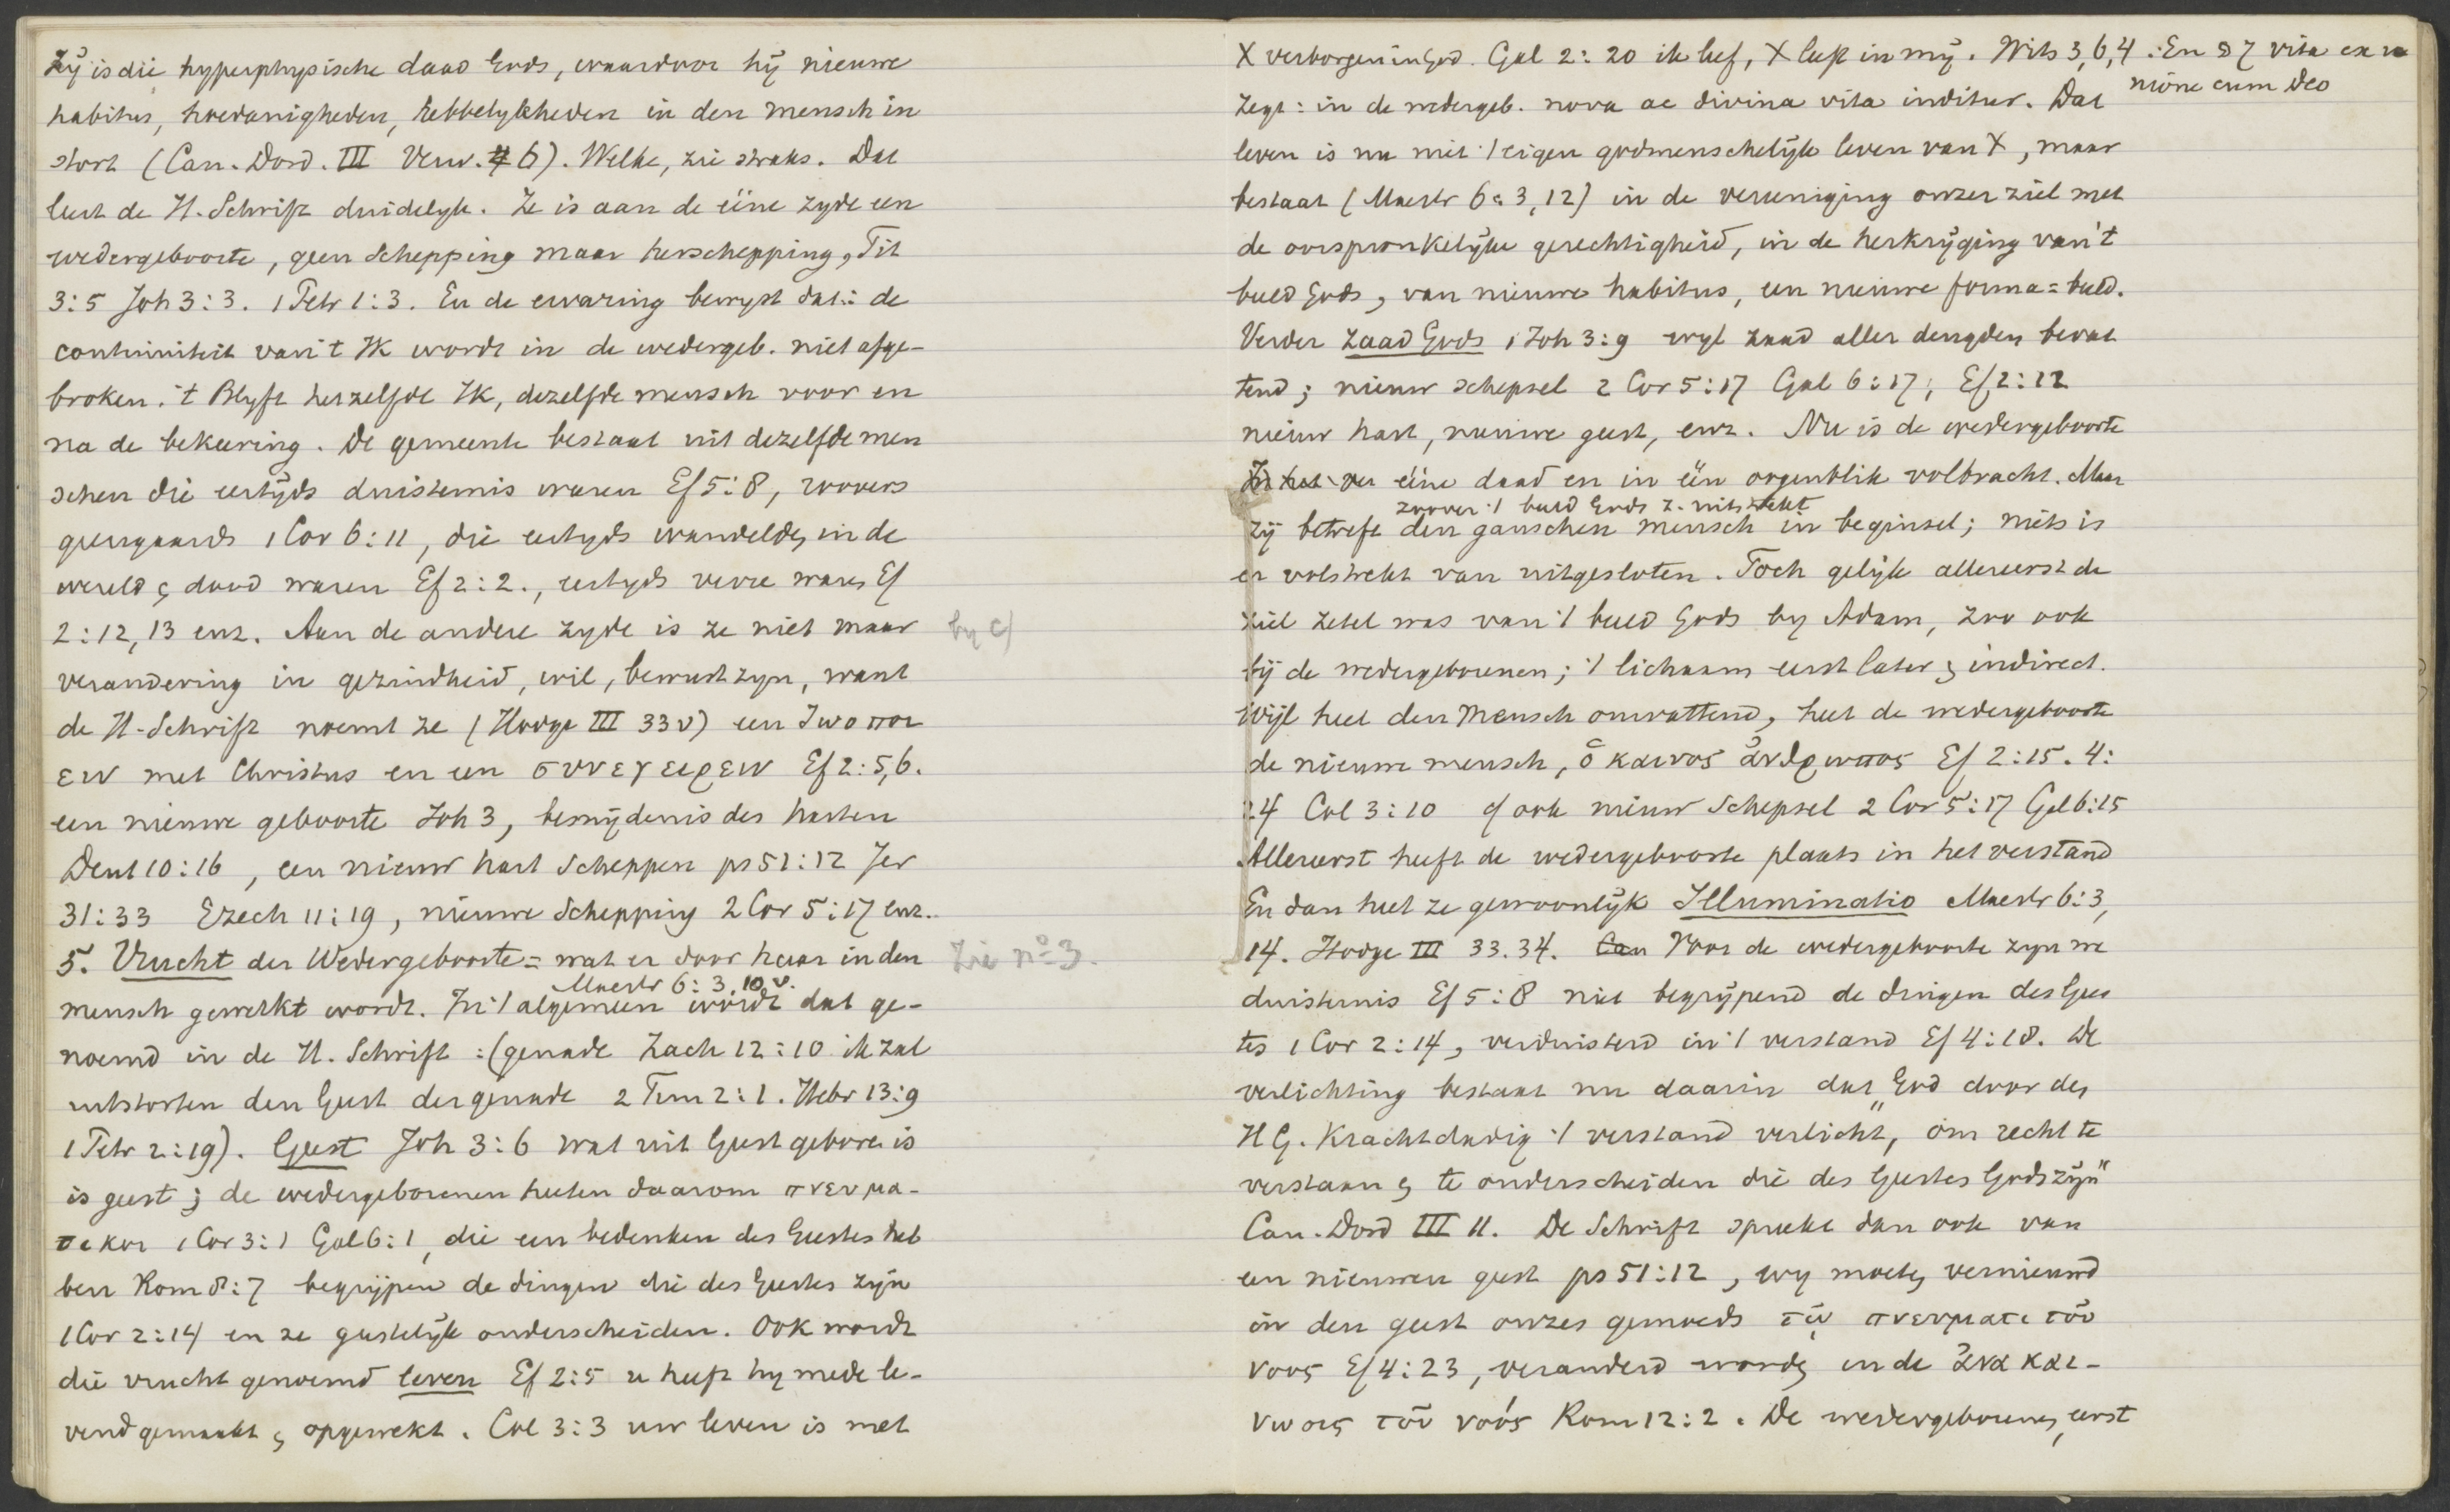 Zÿ is die hyperphysische daad Gods, waardoor hÿ nieuwe
habitus, hoedanigheden, hebbelykheden in den mensch in
stort (Can. Dord. III Verw. 6). Welke, zie straks. Dat
leert de H. Schrift duidelyk. Ze is aan de ééne zyde een
wedergeboorte, geen schepping maar herschepping, Tit
3:5 Joh 3:3. 1 Petr 1:3. En de ervaring bewyst dat: de
continuiteit van 't Ik wordt in de wedergeb. niet afge-
broken. 't Blyft hetzelfde Ik, dezelfde mensch voor en
na de bekeering. De gemeente bestaat uit dezelfde men
schen die eertÿds duisternis waren Ef 5:8, roovers
gierigaards 1 Cor 6:11, die eertyds wandelden in de
wereld en dood waren Ef 2:2., eertyds verre waren Ef
2:12,13 enz. Aan de andere zyde is ze niet maar by c)
verandering in gezindheid, wil, bewustzyn, want
de H-Schrift noemt ze (Hodge III 33 v) een ζωοποι
ειν met Christus en een συνεγειρειν Ef 2:5,6.
een nieuwe geboorte Joh 3, besnÿdenis des harten
Deut 10:16, een nieuw hart scheppen ps 51:12 Jer
31:33 Ezech 11:19, nieuwe Schepping 2 Cor 5:17 enz..
5. Vrucht der Wedergeboorte = wat er door haar in den Zie no 3.
Mastr 6:3,10 v.
mensch gewerkt wordt. In 't algemeen wordt dat ge-
noemd in de H. Schrift: (genade Zach 12:10 ik zal
uitstorten den Geest der genade 2 Tim 2:1. Hebr 13:9
1 Petr 2:19). Geest Joh 3:6 wat uit Geest geboren is
is geest; de wedergeborenen heeten daarom πνευμα-
τικοι 1 Cor 3:1 Gal 6:1, die een bedenken des Geestes heb
ben Rom 8:7 begrijpen de dingen die des Geestes zÿn
1 Cor 2:14 en ze geestelÿk onderscheiden. Ook wordt
die vrucht genoemd leven Ef 2:5 u heeft hy mede le-
vend gemaakt en opgewekt. Col 3:3 uw leven is met
X verborgen in God. Gal 2:20 ik leef, X leeft in mÿ. Wits 3,6,4: En 87 vita ex u
nione cum Deo
zegt: in de wedergeb. nova ac divina vita inditur. Dat
leven is nu niet 't eigen godmenschelÿk leven van X, maar
bestaat (Mastr 6:3,12) in de vereeniging onzer ziel met
de oorspronkelÿke gerechtigheid, in de herkrÿging van 't
beeld Gods, van nieuwe habitus, een nieuwe forma = beeld.
Verder zaad Gods 1 Joh 3:9 wyl zaad aller deugden bevat
tend; nieuw schepsel 2 Cor 5:17 Gal 6:17; Ef 2:12
nieuw hart, nieuwe geest, enz. Nu is de wedergeboorte
ééne daad en in één oogenblik volbracht. Maar
zoover 't beeld Gods z. uitstrekt
zÿ betreft den ganschen mensch in beginsel; niets is
er volstrekt van uitgesloten. Toch gelÿk allereerst de
ziel zetel was van 't beeld Gods by Adam, zoo ook
bÿ de wedergeborenen; 't lichaam eerst later en indirect.
Wÿl heel den Mensch omvattend, heet de wedergeboorte
de nieuwe mensch, ὁ καινος ἀνθρωπος Ef 2:15. 4:
24 Col 3:10 cf ook nieuw Schepsel 2 Cor 5:17 Gal 6:15
Allereerst heeft de wedergeboorte plaats in het verstand
En dan heet ze gewoonlÿk Illuminatio Mastr 6:3,
14. Hodge III 33.34. Voor de wedergeboorte zyn we
duisternis Ef 5:8 niet begrÿpend de dingen des Gees
tes 1 Cor 2:14, verduisterd in 't verstand Ef 4:18. De
verlichting bestaat nu daarin dat "God door den
H G. krachtdadig 't verstand verlicht, om recht te
verstaan en te onderscheiden die des Geestes Gods zÿn"
Can. Dord III 11. De Schrift spreekt dan ook van
een nieuwen geest ps 51:12, wy moeten vernieuwd
in den geest onzes gemoeds τῳ πνευματι τοῦ
νοος Ef 4:23, veranderd worden in de ἀνακαι-
νωσις τοῦ νοός Rom 12:2. De wedergeborenen, eerst